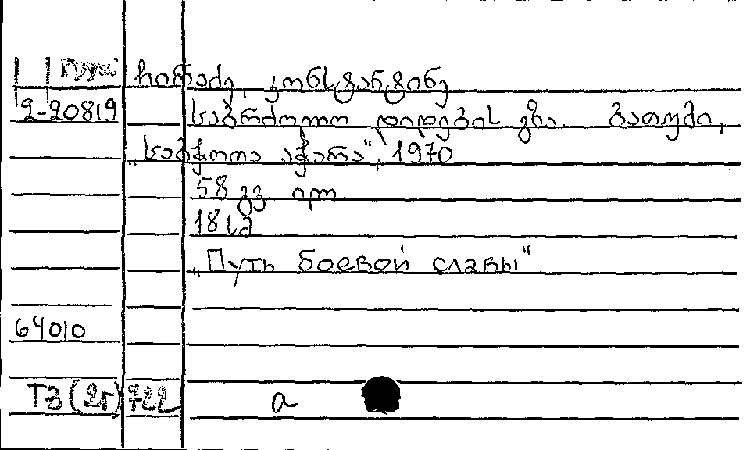 ჩიჩაძე, კონსტანტინე
2-20819 საბრძოლო დიდების გზა. ბათუმი,
„საბჭოთა აჭარა", 1970
58 გვ ილ
18 სმ
„Путь боевой славы"
64010
ТЗ (2г) 722 а